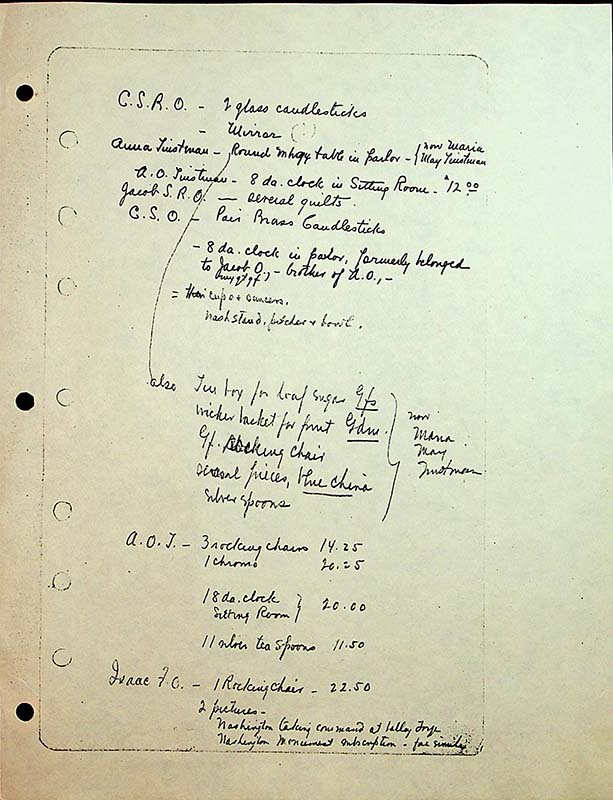 C.S.R.O. - 2 glass candlesticks
- Mirror
Anna Tinstman - Round mhgy table in parlor - { now Maria
May Tinstman
A.O. Tinstman - 8 da. clock in Sitting Room - $12.00
Jacob S.R.O. - several quilts.
C.S.O. - Pair Brass Candlesticks
- 8 da. clock in parlor, formerly belonged
to Jacob O., - brother of A.O., -
= cups & saucers.
washstand, pitcher & bowl.
also Tin box for loaf sugar Gfs
wicker basket for fruit Gdm.
Gf. rocking chair
several pieces, blue china
silver spoons
now
Maria
May
Tinstman
A.O.T. - 3 rocking chairs 14.25
1 chromo 20.25
1 8 da. clock
Sitting Room } 20.00
11 silver tea spoons 11.50
Isaac F.O. - 1 Rocking Chair - 22.50
2 pictures -
Washington taking command at Valley Forge
Washington Monument subscription - fac simile